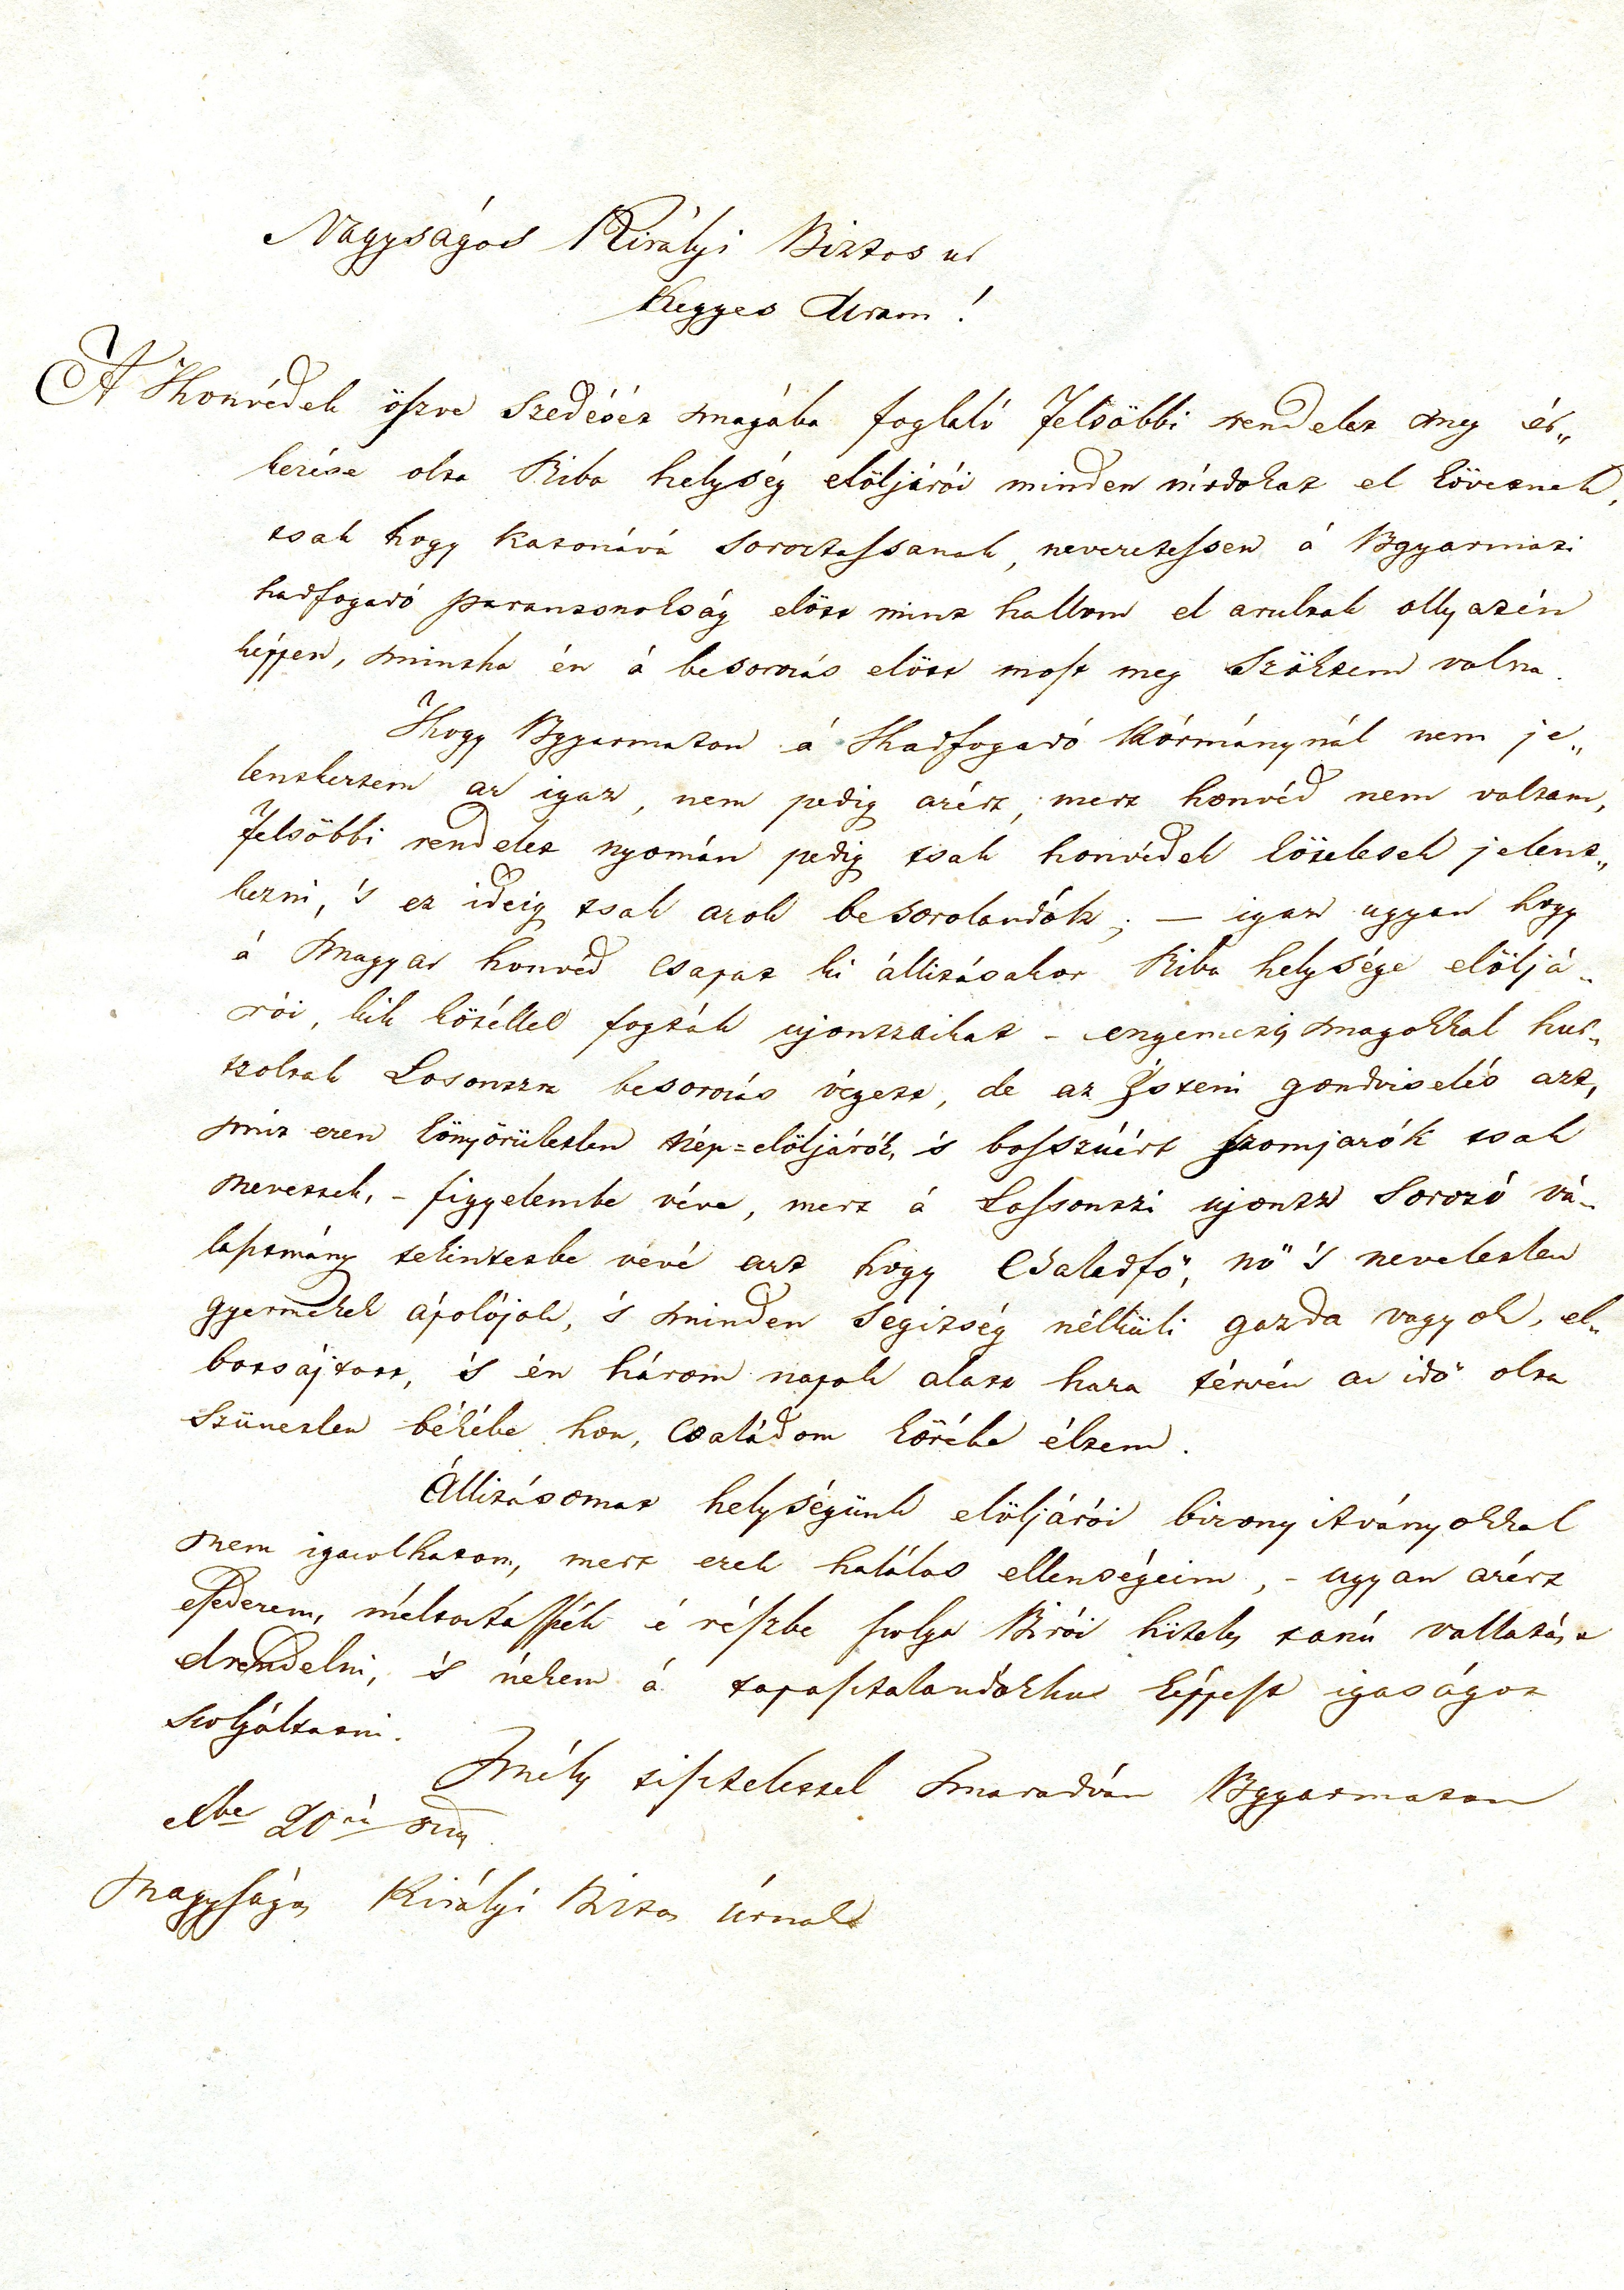 Nagyságos Királyi Biztos ur
Kegyes Uram!
A Honvédek öszve szedését magába foglaló felsöbbi rendelet meg ér„
kezése olta Riba helység elöljárói minden módokat el követnek,
tsak hogy katonává soroztassanak, nevezetessen á BGyarmati
hadfogadó parantsnokság elött mint hallom el arultak ollyatén
képpen, mintha én á besorozás elött most meg szöktem volna.
Hogy BGyarmaton á Hadfogadó Kórmánynál nem je„
lentkeztem az igaz, nem pedig azért, mert honvéd nem voltam,
felsöbbi rendelet nyomán pedig tsak honvédek kötelesek jelent„
kezni, 's ez ideig tsak azok besorolandók; — igaz ugyan hogy
á Magyar honvéd csapat ki állitásakor Riba helysége elöljá„
rói, kik kötéllel fogták ujontzaikat - engemetis magokkal hur„
tzoltak Losontzra besorozás végett, de az Isteni gondviselés azt,
mit ezen könyörületlen nép=elöljárók, 's bosszúért szomjazók tsak
nevettek, - figyelembe véve, mert á Lossontzi ujontz Sorozó vá„
lasztmány tekintetbe vevé azt hogy Csaladfö, nö 's neveletlen
gyermekek ápolójok, 's minden segitség nélküli gazda vagyok, el„
botsájtott, 's én három napok alatt haza térvén az idö olta
szünetlen békébe hon, családom körébe éltem.
Állitásomat helységünk elöljárói bizonyitványokkal
nem igazolhatom, mert ezek halálos ellenségeim, - ugyan azért
esedezem, méltoztassék é részbe szolga Birói hiteles tanú vallatást
elrendelni, 's nékem á tapasztalandókhoz képpest igaságot
szolgáltatni.
Mély tisztelettel maradván BGyarmaton
Xbe 20án
Nagyságos Királyi Biztos úrnak